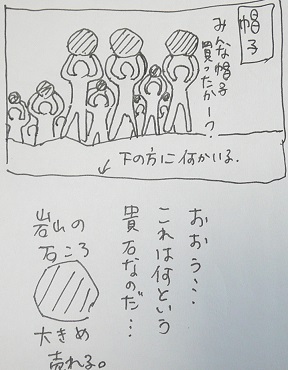 帽子
みんな帽子
買ったかー?
下の方に何かいる.
おおう・・・
これは何という
貴石なのだ・・・
岩山の
石ころ
大きめ
売れる。